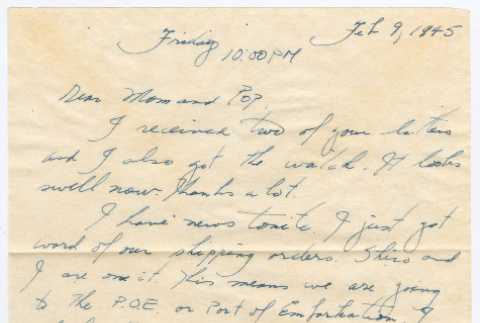 Feb 9, 1945
Friday
10:00 PM
Dear Mom and Pop,
I received two of your letters
and I also got the watch. It looks
swell now. Thanks a lot.
I have news tonite. I just got
word of our shipping orders. Shiro and
I are on it. This means we are going
to the P.O.E. or Port of Embarkation. I